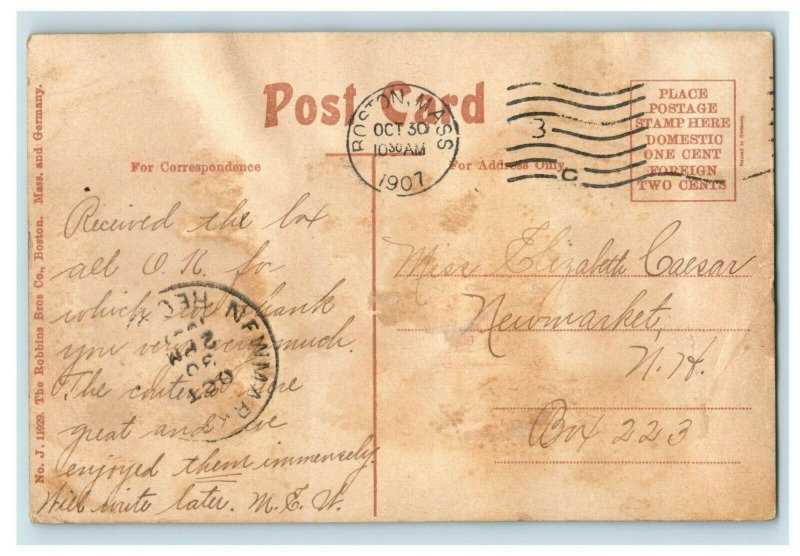 Post Card
PLACE
POSTAGE
STAMP HERE
DOMESTIC
ONE CENT
FOREIGN
TWO CENTS
Printed in Germany.
BOSTON, MASS
OCT 30
10 30 AM
1907
3
C
For Correspondence
For Address Only
Received the box
all O.K. for
which we thank
you very very much.
The contents were
great and we
enjoyed them immensely.
Will write later. M.E.W.
NEWMARKET
REC'D
OCT
30
2 PM
Miss Elizabeth Caesar
Newmarket,
N.H.
Box 223
No. J. 11929. The Robbins Bros Co., Boston. Mass. and Germany.